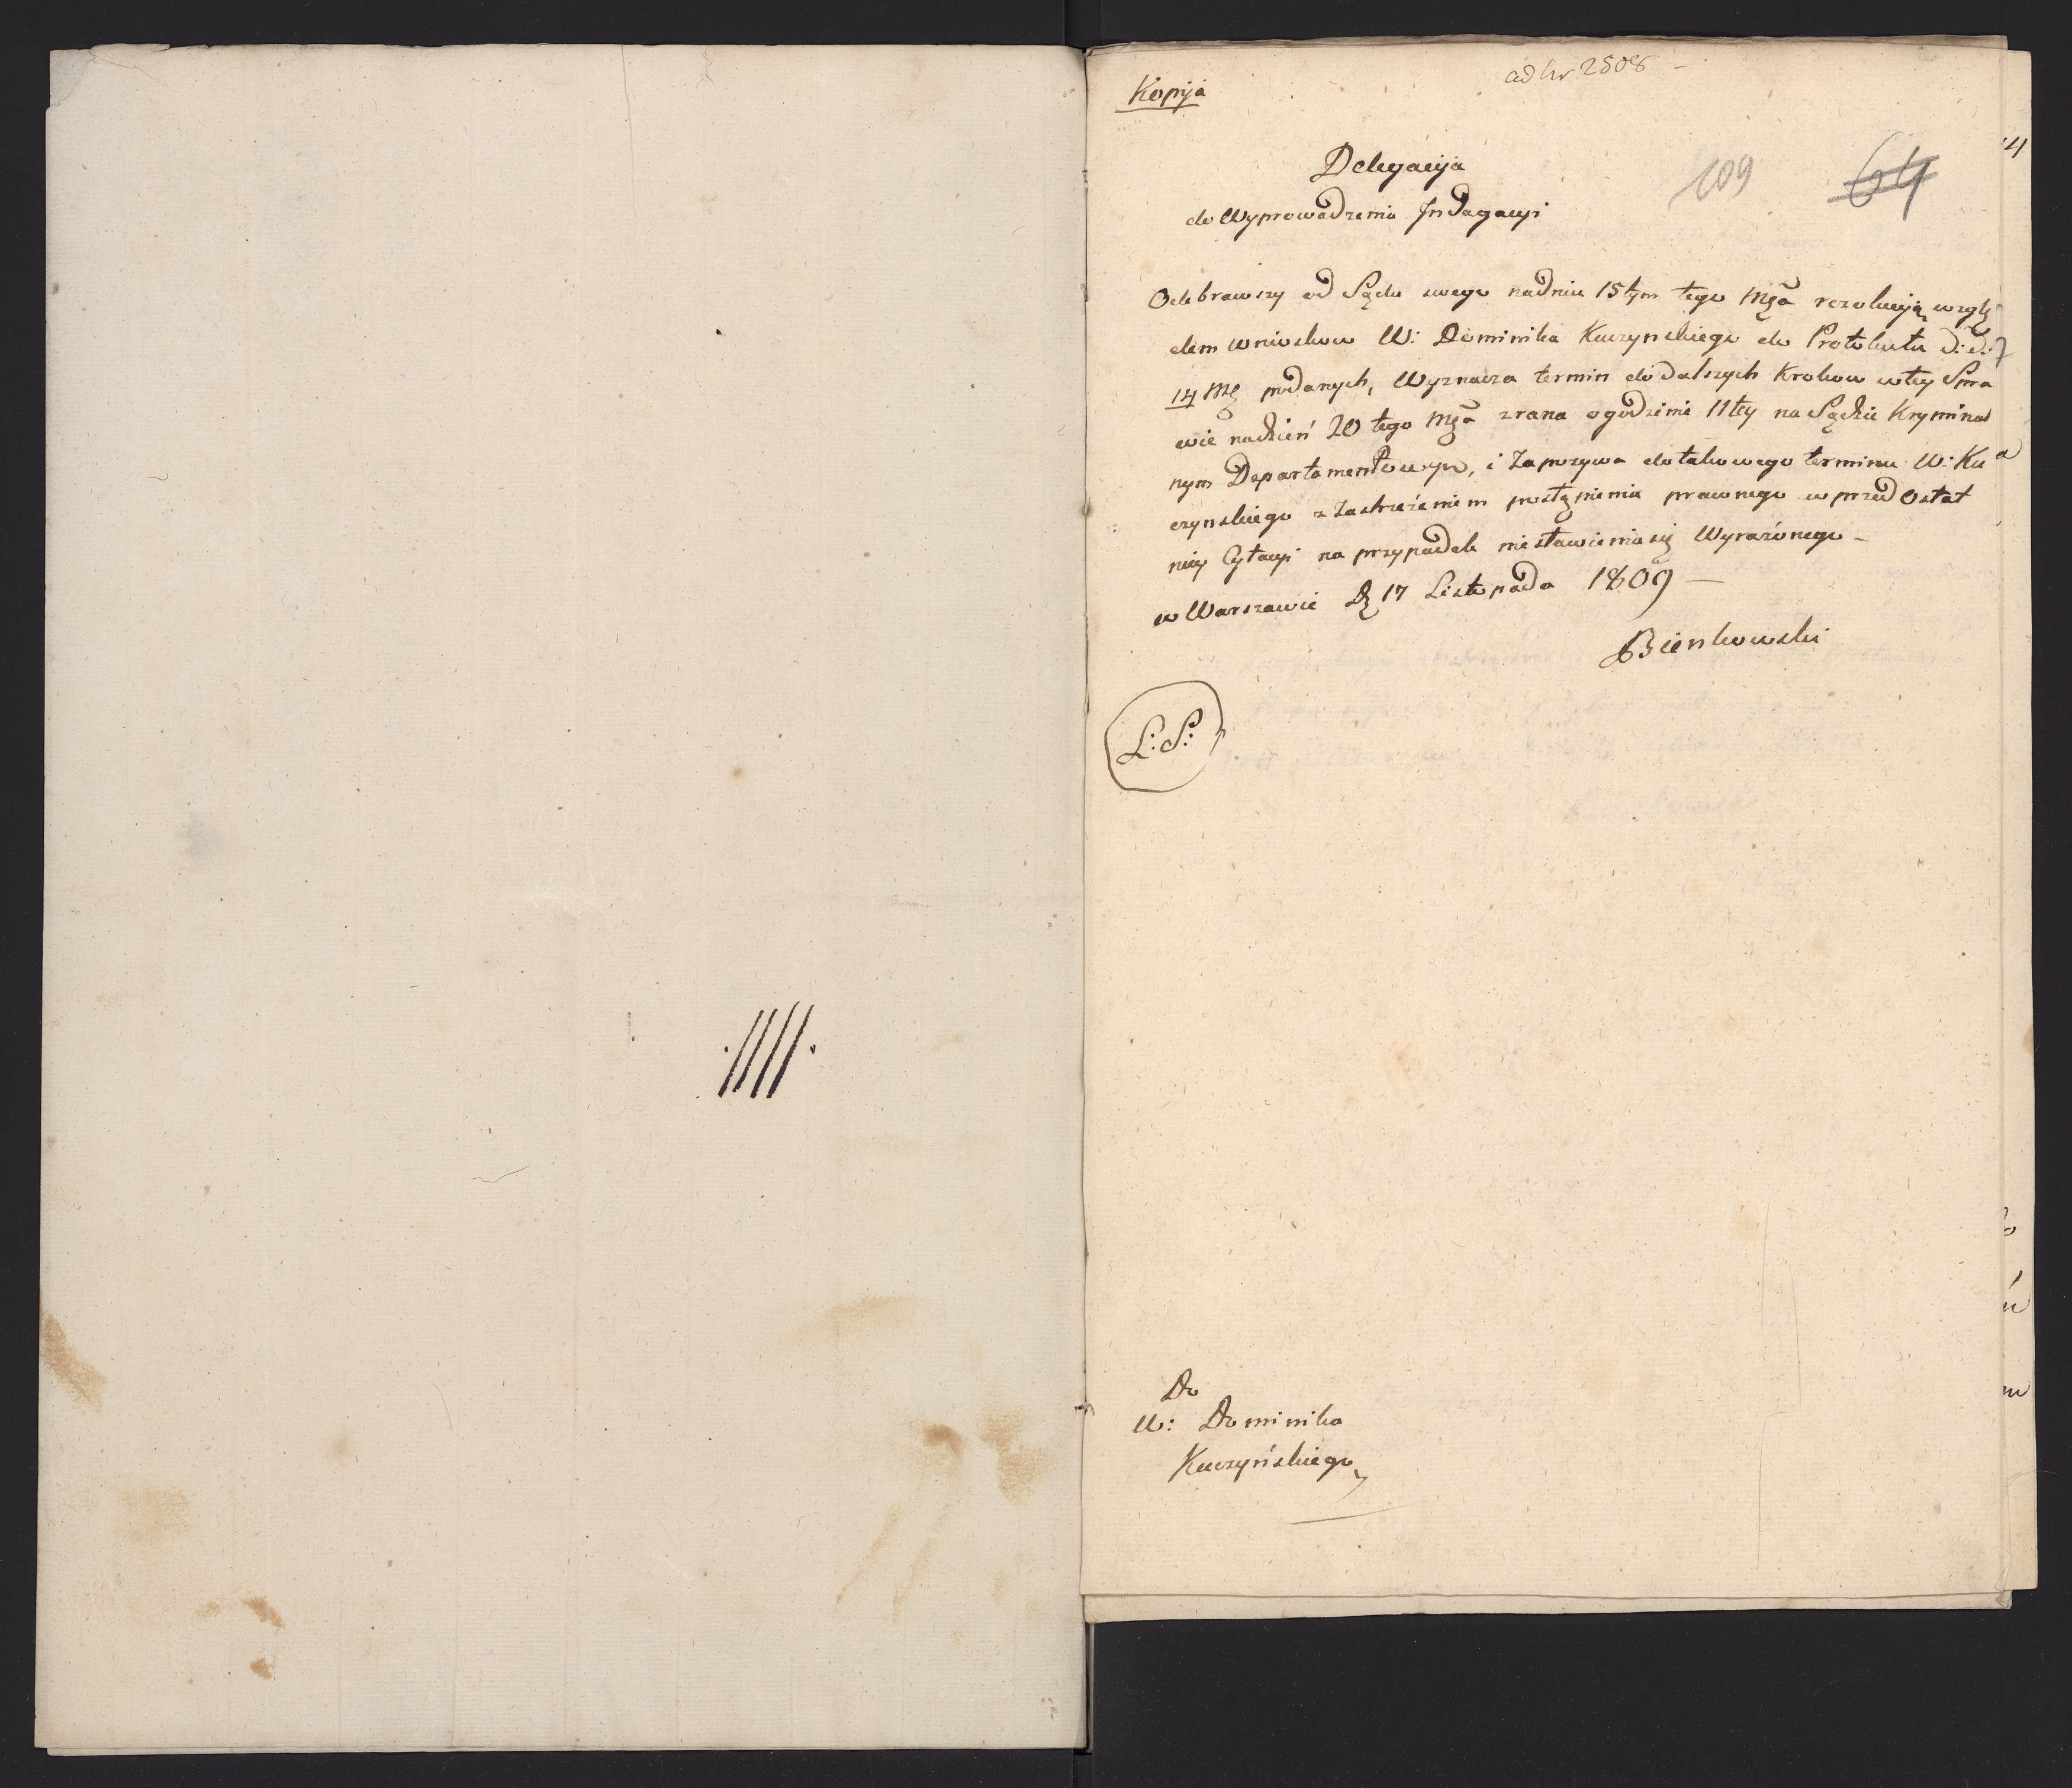 ad Nr 2508 -
Kopija
109
64
Delegacyja
do Wyprowadzenia Indagacyi
Odebrawszy od Sądu swego nadniu 15tym tego Mca rezolucyją wzglę
dem wniosków W: Dominika Kuczynskiego do Protokułu d: d:
14 podanych, Wyznacza termin do dalszych Krokow wtey Spra
wie nadzień 20 tego Mca zrana ogodzinie 11tey na Sądzie Kryminal
nym Departamentowym, i Zapozywa dotakowego terminu W: Ku
czynskiego z Zastrzeżeniem postąpienia prawnego w przed Ostat
niey Cytacyi na przypadek niestawienia się Wyrażonego -
w Warszawie D 17 Listopada 1809 —
Bienkowski
L: S:
Do
W: Dominika
Kuczyńskiego